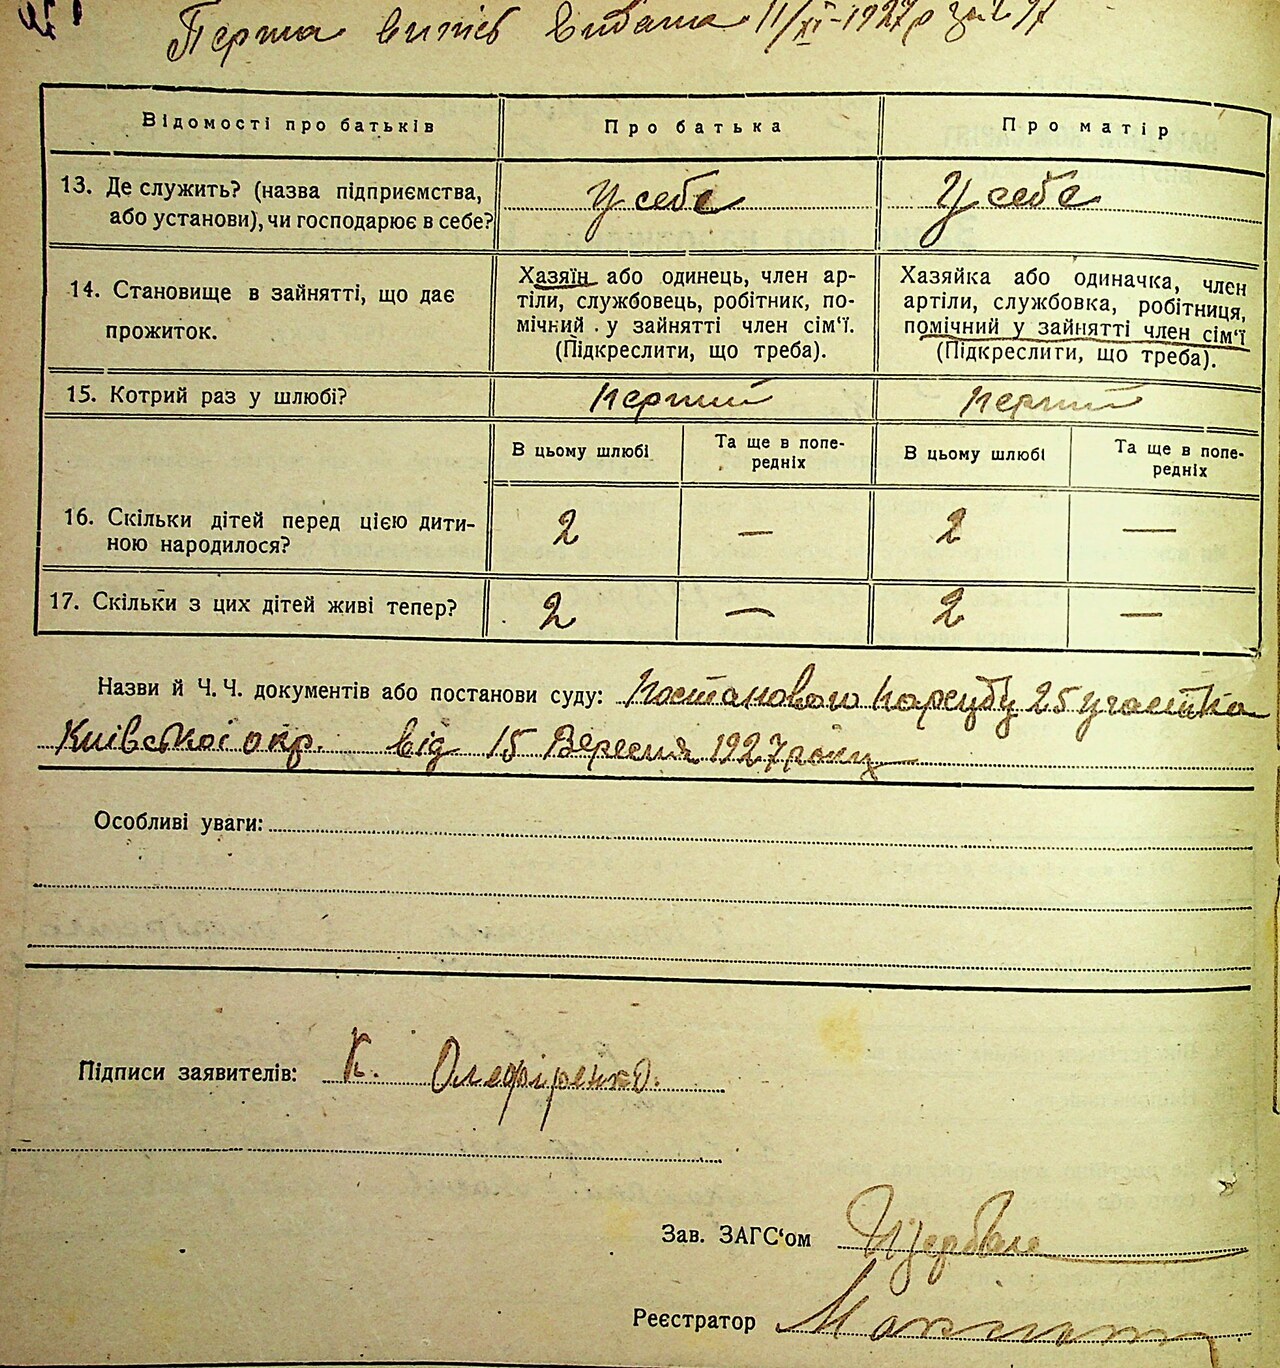 Перша випись видана 11/XI-1927р за №
Відомості про батьків
Про батька
Про матір
13. Де служить? (назва підприємства,
або установи), чи господарює в себе?
У себе
У себе
14. Становище в зайнятті, що дає
прожиток.
Хазяїн або одинець, член ар-
тіли, службовець, робітник, по-
мічний у зайнятті член сім‘ї.
(Підкреслити, що треба).
Хазяйка або одиначка, член
артіли, службовка, робітниця,
помічний у зайнятті член сім‘ї
(Підкреслити, що треба).
15. Котрий раз у шлюбі?
перший
перший
В цьому шлюбі
Та ще в попе-
редніх
В цьому шлюбі
Та ще в попе-
редніх
16. Скільки дітей перед цією дити-
ною народилося?
2
—
2
—
17. Скільки з цих дітей живі тепер?
2
—
2
—
Назви й Ч. Ч. документів або постанови суду: Постановою Нарсуду 25 участка
Київської окр. від 15 Вересня 1927 року
Особливі уваги:
Підписи заявителів: К. Олефіренко.
Зав. ЗАГС‘ом
Реєстратор